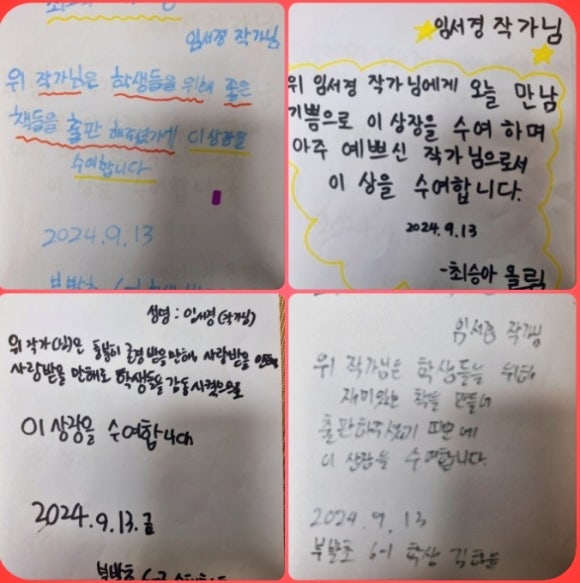 임서경 작가님
위 작가님은 학생들을 위해 좋은
책들을 출판 해주셨기에 이 상장을
수여합니다
2024.9.13
임서경 작가님
위 임서경 작가님에게 오늘 만남
기쁨으로 이 상장을 수여 하며
아주 예쁘신 작가님으로서
이 상을 수여합니다.
2024.9.13
-최승아 올림
성명 : 임서경(작가님)
위 작가(님)은 충분히 존경받을만해 사랑받을
사랑받을 만해도 학생들을 감동시켰으므로
이 상장을 수여합니다
2024.9.13.금
부발초
임서경 작가님
위 작가님은 학생들을 위해
재미있는 책을 만들어
출판해주셨기 때문에
이 상장을 수여합니다.
2024.9.13
부발초 6-1 학생